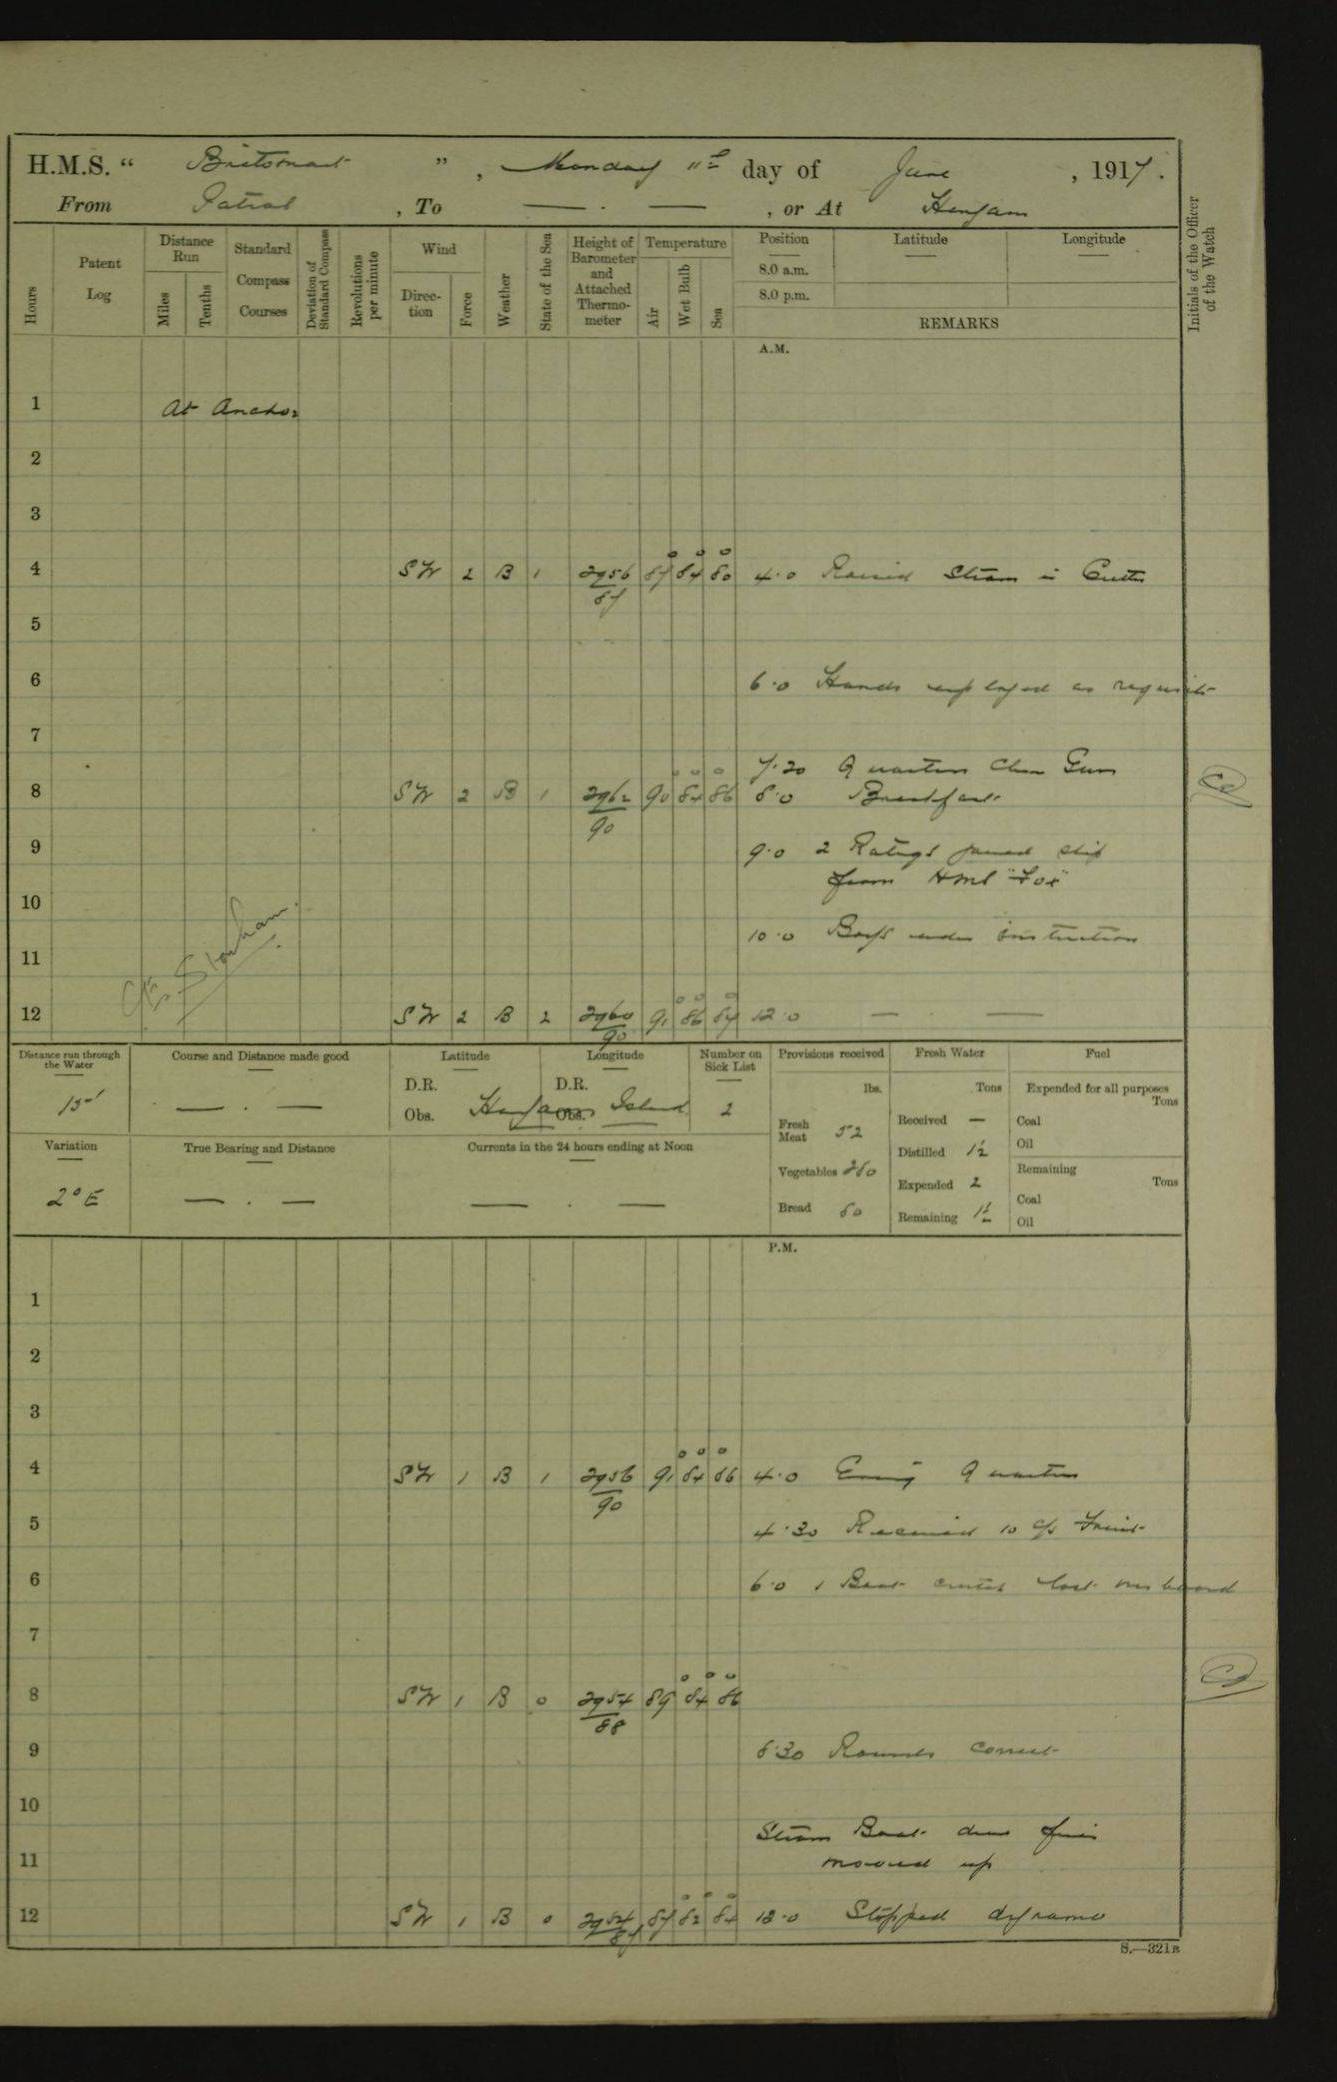 H.M.S. " Britomart ", Monday 11th day of June, 1917.
From Patrol, To — . —, or At Henjam
Hours
Patent Log
Distance Run
Miles
Tenths
Standard Compass Courses
Deviation of Standard Compass
Revolutions per minute
Wind
Direction
Force
Weather
State of the Sea
Height of Barometer and Attached Thermometer
Temperature
Air
Wet Bulb
Sea
Position
Latitude
Longitude
8.0 a.m.
8.0 p.m.
REMARKS
Initials of the Officer of the Watch
A.M.
1 At Anchor
2
3
4 SW 2 B 1 2956/87 87 84 80 4.0 Raised Steam in Cutter
5
6 6.0 Hands employed as requisite
7
7.20 Quarters Clean Guns
8 SW 2 B 1 2962/90 90 84 86 8.0 Breakfast
9 9.0 2 Ratings joined ship
from HMS "Fox"
10
10.0 Boys under instruction
11
12 SW 2 B 2 2960/90 91 86 84 12.0 — . —
Distance run through the Water
Course and Distance made good
Latitude
Longitude
Number on Sick List
Provisions received
Fresh Water
Fuel
D.R.
D.R.
lbs.
Tons
Expended for all purposes
Tons
— . —
Obs. Henjam Obs. Island
2
Fresh Meat 52
Received —
Coal
Oil
Variation
True Bearing and Distance
Currents in the 24 hours ending at Noon
Distilled 1½
Vegetables 260
Remaining
Tons
2° E
— . —
— . —
Expended 2
Coal
Bread 60
Remaining
Oil
P.M.
1
2
3
4 SW 1 B 1 2956/90 91 84 86 4.0 Evening Quarters
5 4.30 Received 10 c/s
6 6.0 1 Boat lost overboard
7
8 SW 1 B 0 2954/88 89 84 86
9 8.30 Rounds correct
10
Steam Boat drew fires
11 moored up
12 SW 1 B 0 2954/87 87 82 84 12.0 Stopped dynamo
S.—321B